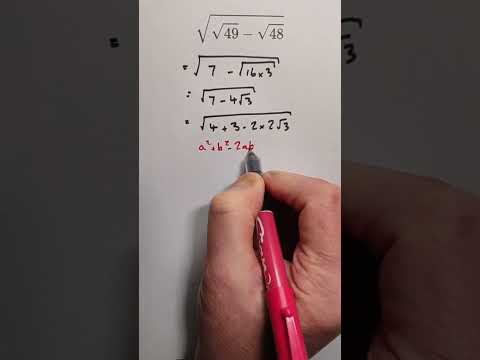 √(√49 − √48)
= √(7 − √(16×3))
= √(7 − 4√3)
= √(4 + 3 − 2×2√3)
a² + b² − 2ab